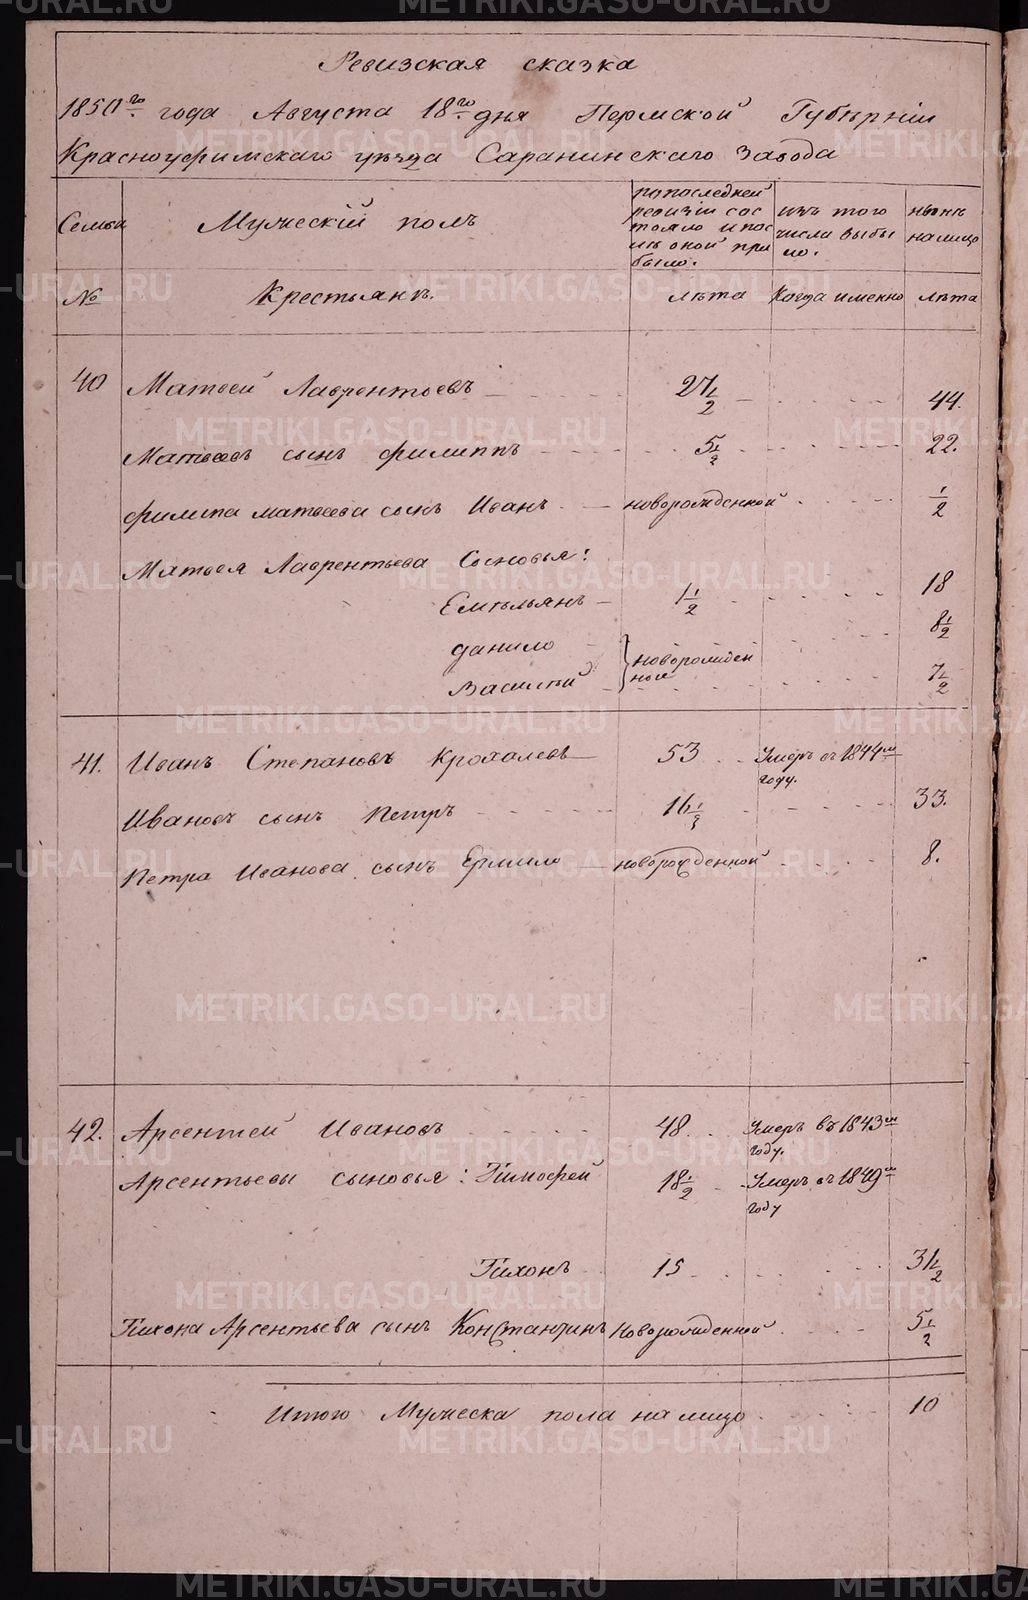 Ревизская сказка
1850го года Августа 18го дня Пермской Губѣрніи
Красноуфимскаго уѣзда Саранинскаго Завода
Семьи
Мужескій полъ
по последней
ревизіи сос
тояло и пос
лѣ оной при
было.
изъ того
числа выбы
ло.
нынѣ
на лицо
№
Крестьянѣ.
лѣта
Когда именно
лѣта
40 Матвей Лаврентьевъ 27 1/2 44.
Матвеевъ сынъ Филиппъ 5 1/2 22.
Филипа Матвеева сынъ Иванъ новорожденной 1/2
Матвея Лаврентьева Сыновья:
Емѣльянъ 1 1/2 18
Данило 8 1/2
новорожден
ные
Василій 7 1/2
41. Иванъ Степановъ Крохалевъ 53 Умеръ въ 1844м
году.
Ивановъ сынъ Петръ 16 1/2 33.
Петра Иванова сынъ Ермило новорожденной 8.
42. Арсентей Ивановъ 48 Умеръ въ 1843м
году.
Арсентьевы сыновья: Тимофей 18 1/2 Умеръ въ 1849м
году
Тихонъ 15 31 1/2
Тихона Арсентьева сынъ Константинъ Новорожденной 5 1/2
Итого Мужеска пола на лицо 10
METRIKI.GASO-URAL.RU